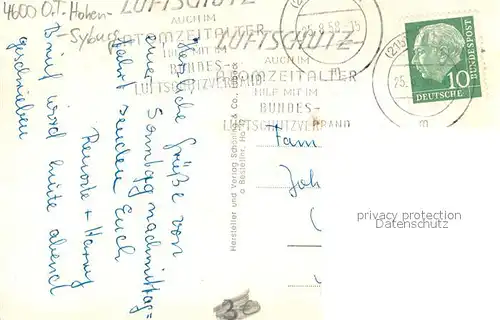 4600 O.T. Hohen-
Syburg
LUFTSCHUTZ
AUCH IM
ATOMZEITALTER
HILF MIT IM
BUNDES-
LUFTSCHUTZVERBAND
LUFTSCHUTZ
AUCH IM
ATOMZEITALTER
HILF MIT IM
BUNDES-
LUFTSCHUTZVERBAND
25.9.58
25.
m
10
DEUTSCHE
BUNDESPOST
Herzliche Grüße von
einer Sonntagnachmittag=
fahrt senden Euch
Harry
Brief wird heute abend
geschrieben
Hersteller und Verlag Schöning & Co., Lübeck
Fam
Joh
privacy protection
Datenschutz